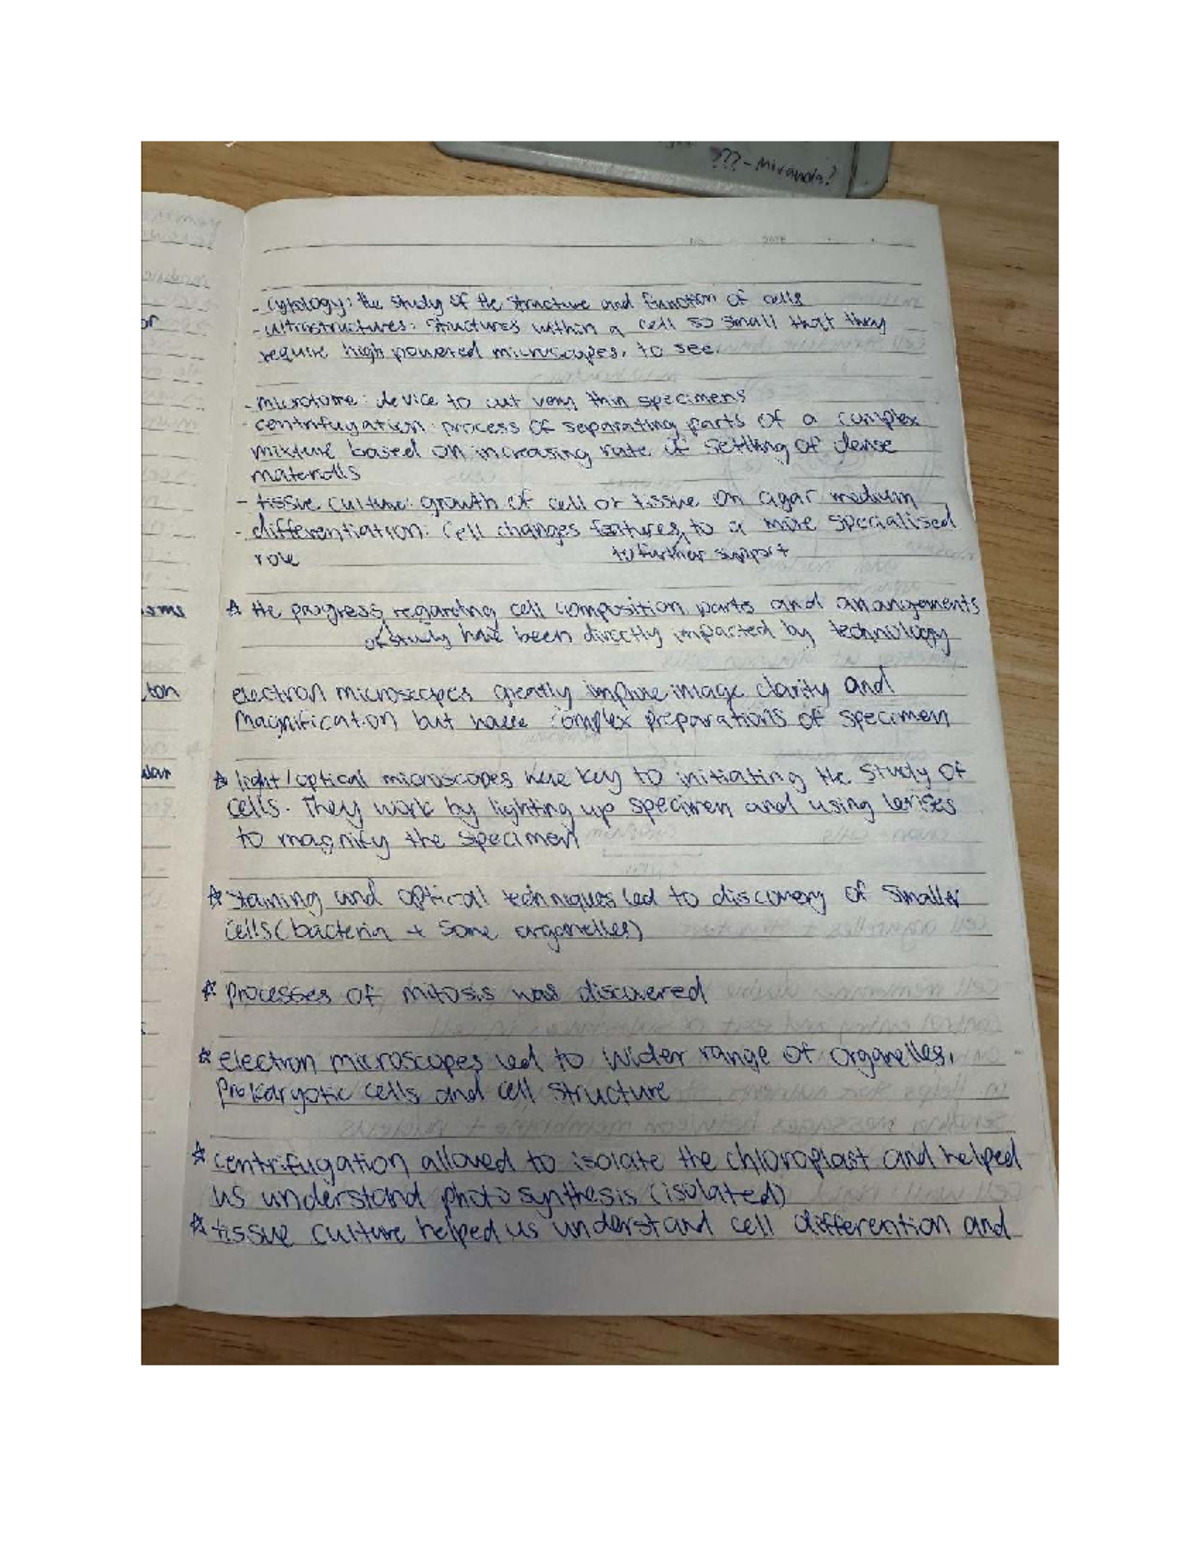 ???-Miranda?
DATE
- cytology: the study of the structure and function of cells
- ultrastructures: structures within a cell so small that they
require high powered microscopes, to see.
- microtome: device to cut very thin specimens
- centrifugation: process of separating parts of a complex
mixture based on increasing rate of settling of dense
materials
- tissue culture: growth of cell or tissue on agar medium
- differentiation: cell changes features to a more specialised
role to further support
☆ the progress regarding cell composition parts and arrangements
of study have been directly impacted by technology
electron microscopes greatly improve image clarity and
magnification but have complex preparations of specimen
☆ light/optical microscopes were key to initiating the study of
cells. They work by lighting up specimen and using lenses
to magnify the specimen
☆ staining and optical techniques led to discovery of smaller
cells (bacteria + some organelles)
☆ processes of mitosis was discovered
☆ electron microscopes led to wider range of organelles,
prokaryotic cells and cell structure
☆ centrifugation allowed to isolate the chloroplast and helped
us understand photosynthesis (isolated)
☆ tissue culture helped us understand cell differention and